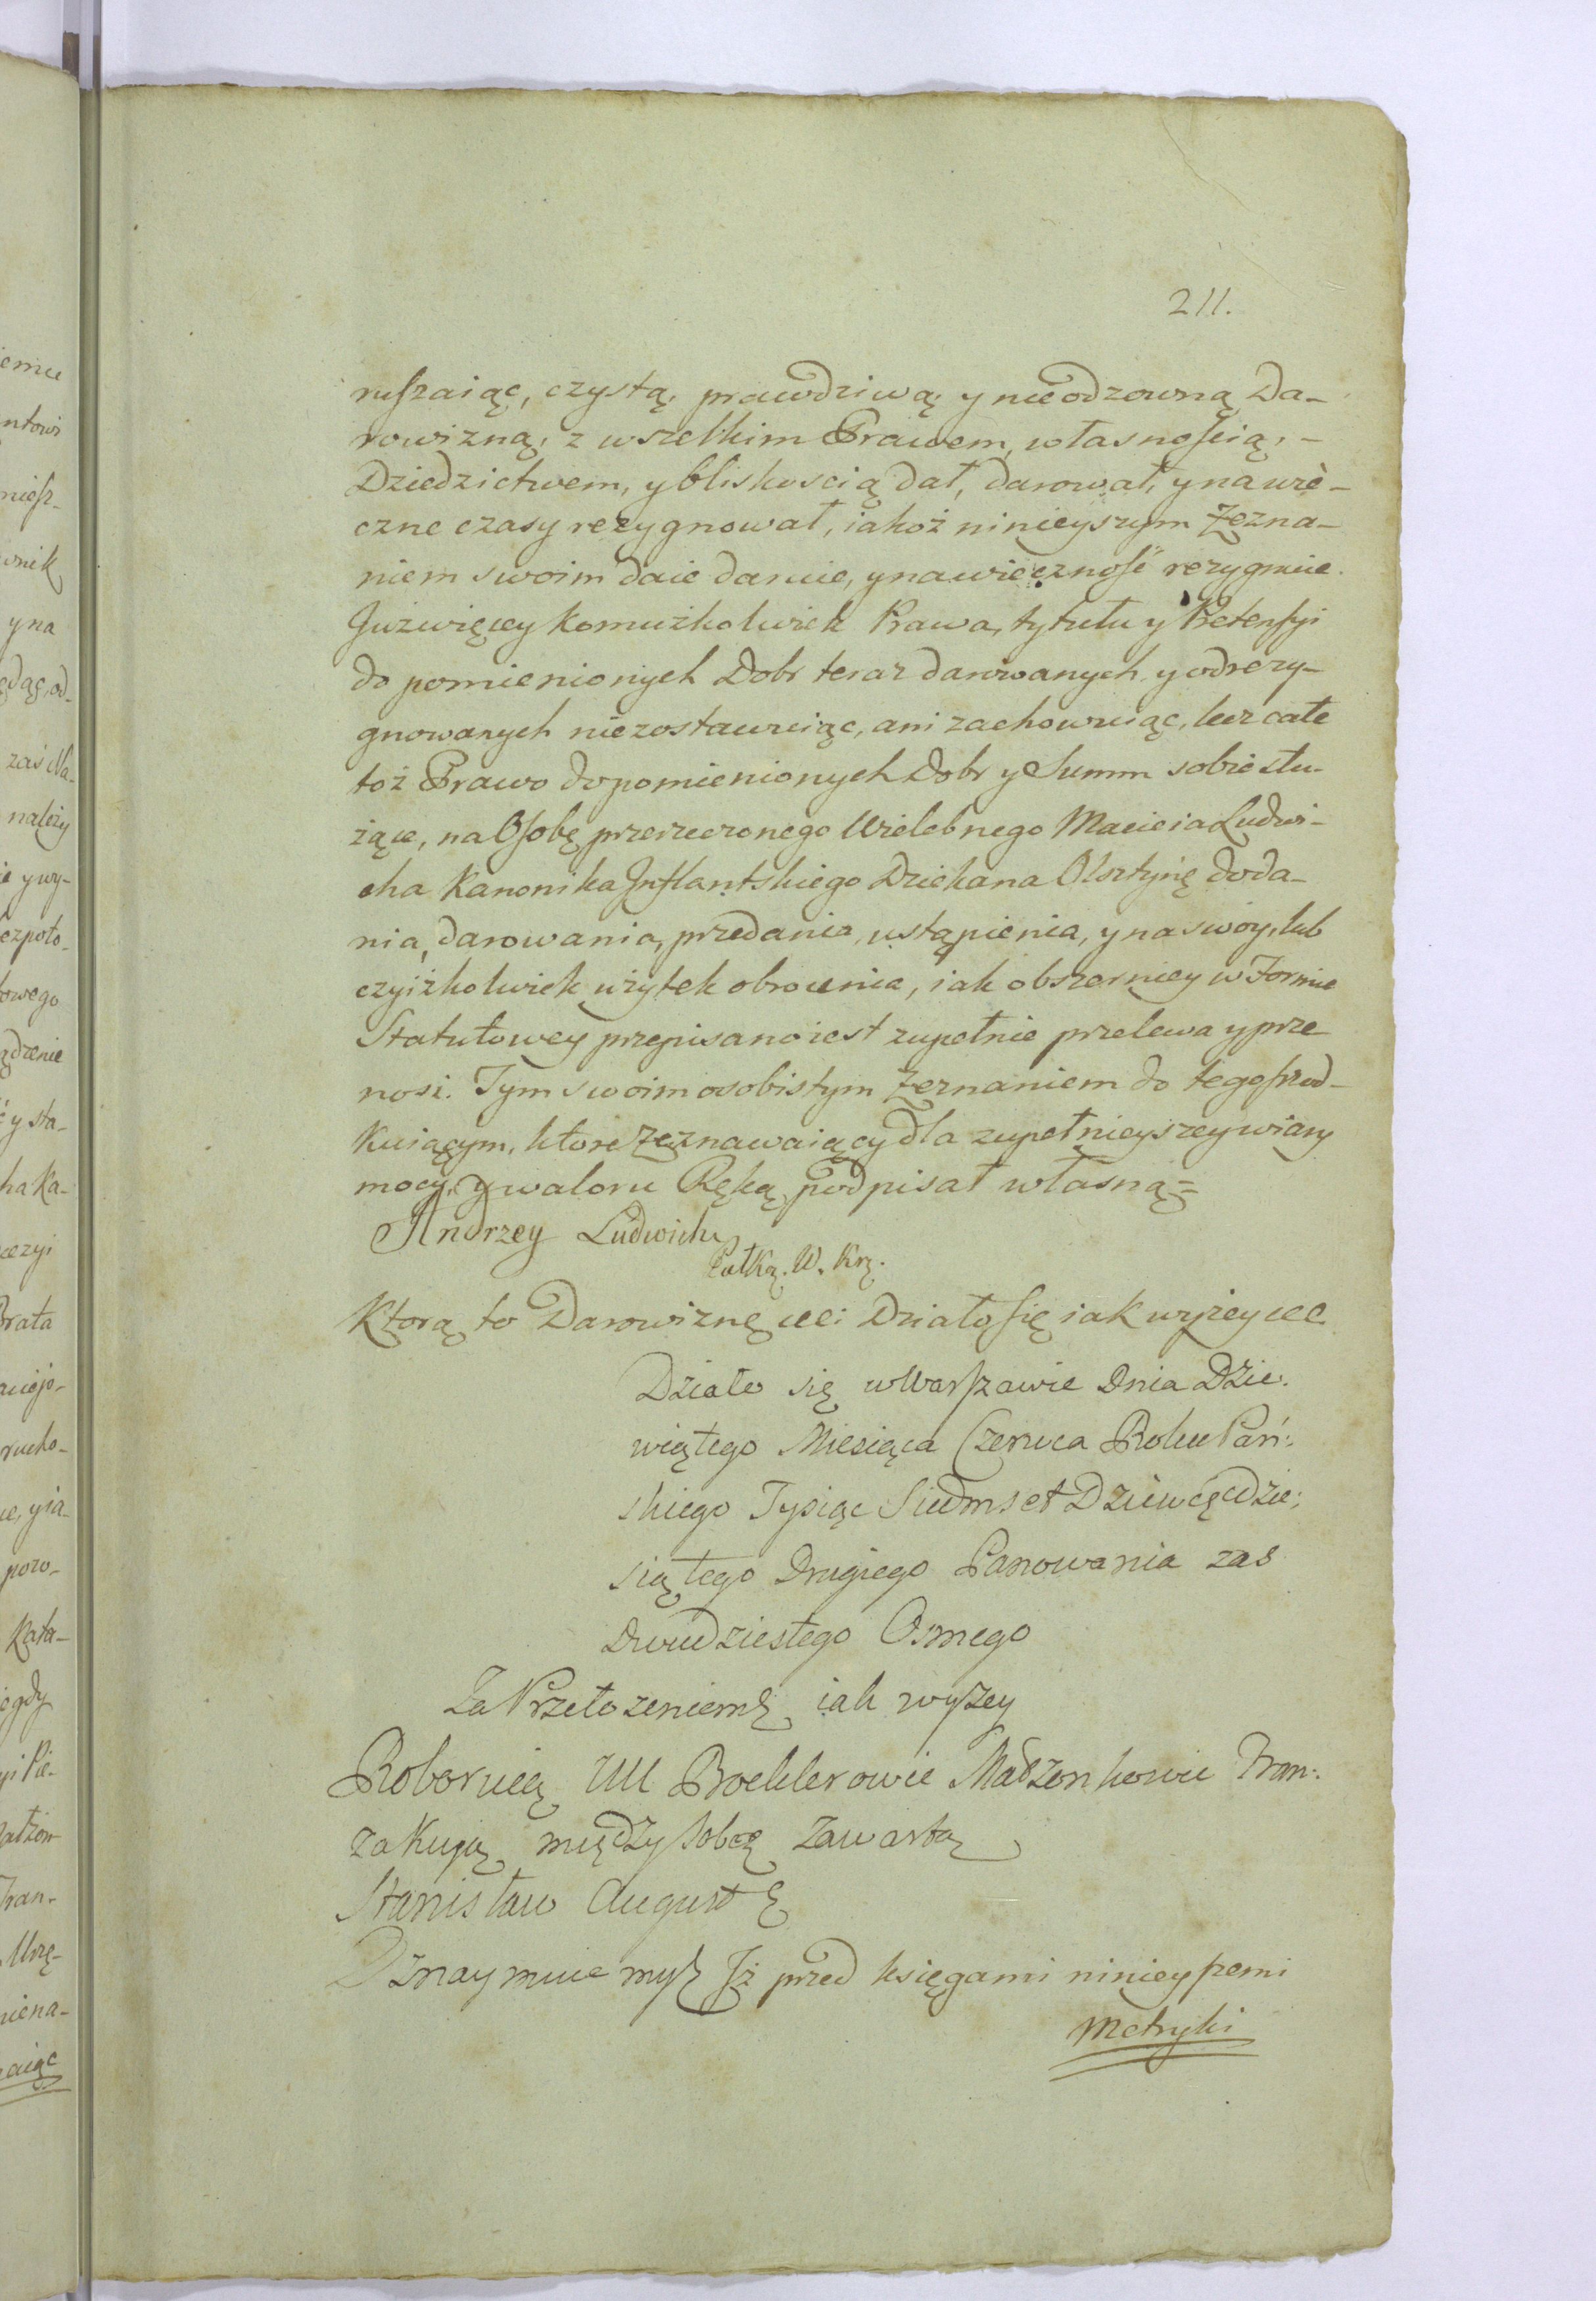 211.
ruszaiąc, czystą, prawdziwą y nieodzowną Da-
rowizną, z wszelkim Prawem, własnością, -
Dziedzictwem, y bliskoscią dał, darował, y na wie-
czne czasy rezygnował, iakoż ninieyszym Zezna-
niem swoim daie daruie, y na wieczność rezygnuie.
Już więcey komużkolwiek Prawa, tytułu y Pretensyi
do pomienionych Dobr teraz darowanych y odrezy-
gnowanych niezostawuiąc, ani zachowuiąc, lecz całe
toż Prawo do pomienionych Dobr y Summ sobie słu-
żące, na Osobę przerzeczonego Wielebnego Macieia Ludwi-
cha Kanonika Inflantskiego Dziekana Olsztynę do da-
nia, darowania, przedania, ustąpienia, y na swóy, lub
czyiżkolwiek użytek obrocenia, iak obszerniey w Formie
Statutowey przepisano iest zupełnie przelewa y prze
nosi. Tym swoim osobistym Zeznaniem do tego szrod-
kuiącym, ktore Zeznawaiący dla zupełnieyszey wiary
mocy, y waloru Ręką podpisał własną =
Andrzey Ludwich
Pułk. W. Kr.
Ktorą to Darowiznę etc: Działo się iak wyżey etc
Działo się w Warszawie Dnia Dzie.
wiątego Miesiąca Czerwca Roku Pań:
skiego Tysiąc Siedmset Dziewięćdzie:
siątego Drugiego Panowania zas
Dwudziestego Osmego
Za Przełozeniem etc iak wyżey
Roboruią UU Boeklerowie Małżonkowie Tran:
zakcyą między sobą zawartą
Stanisław August etc
Oznaymuiemy etc Iż przed księgami ninieyszemi
Metryki